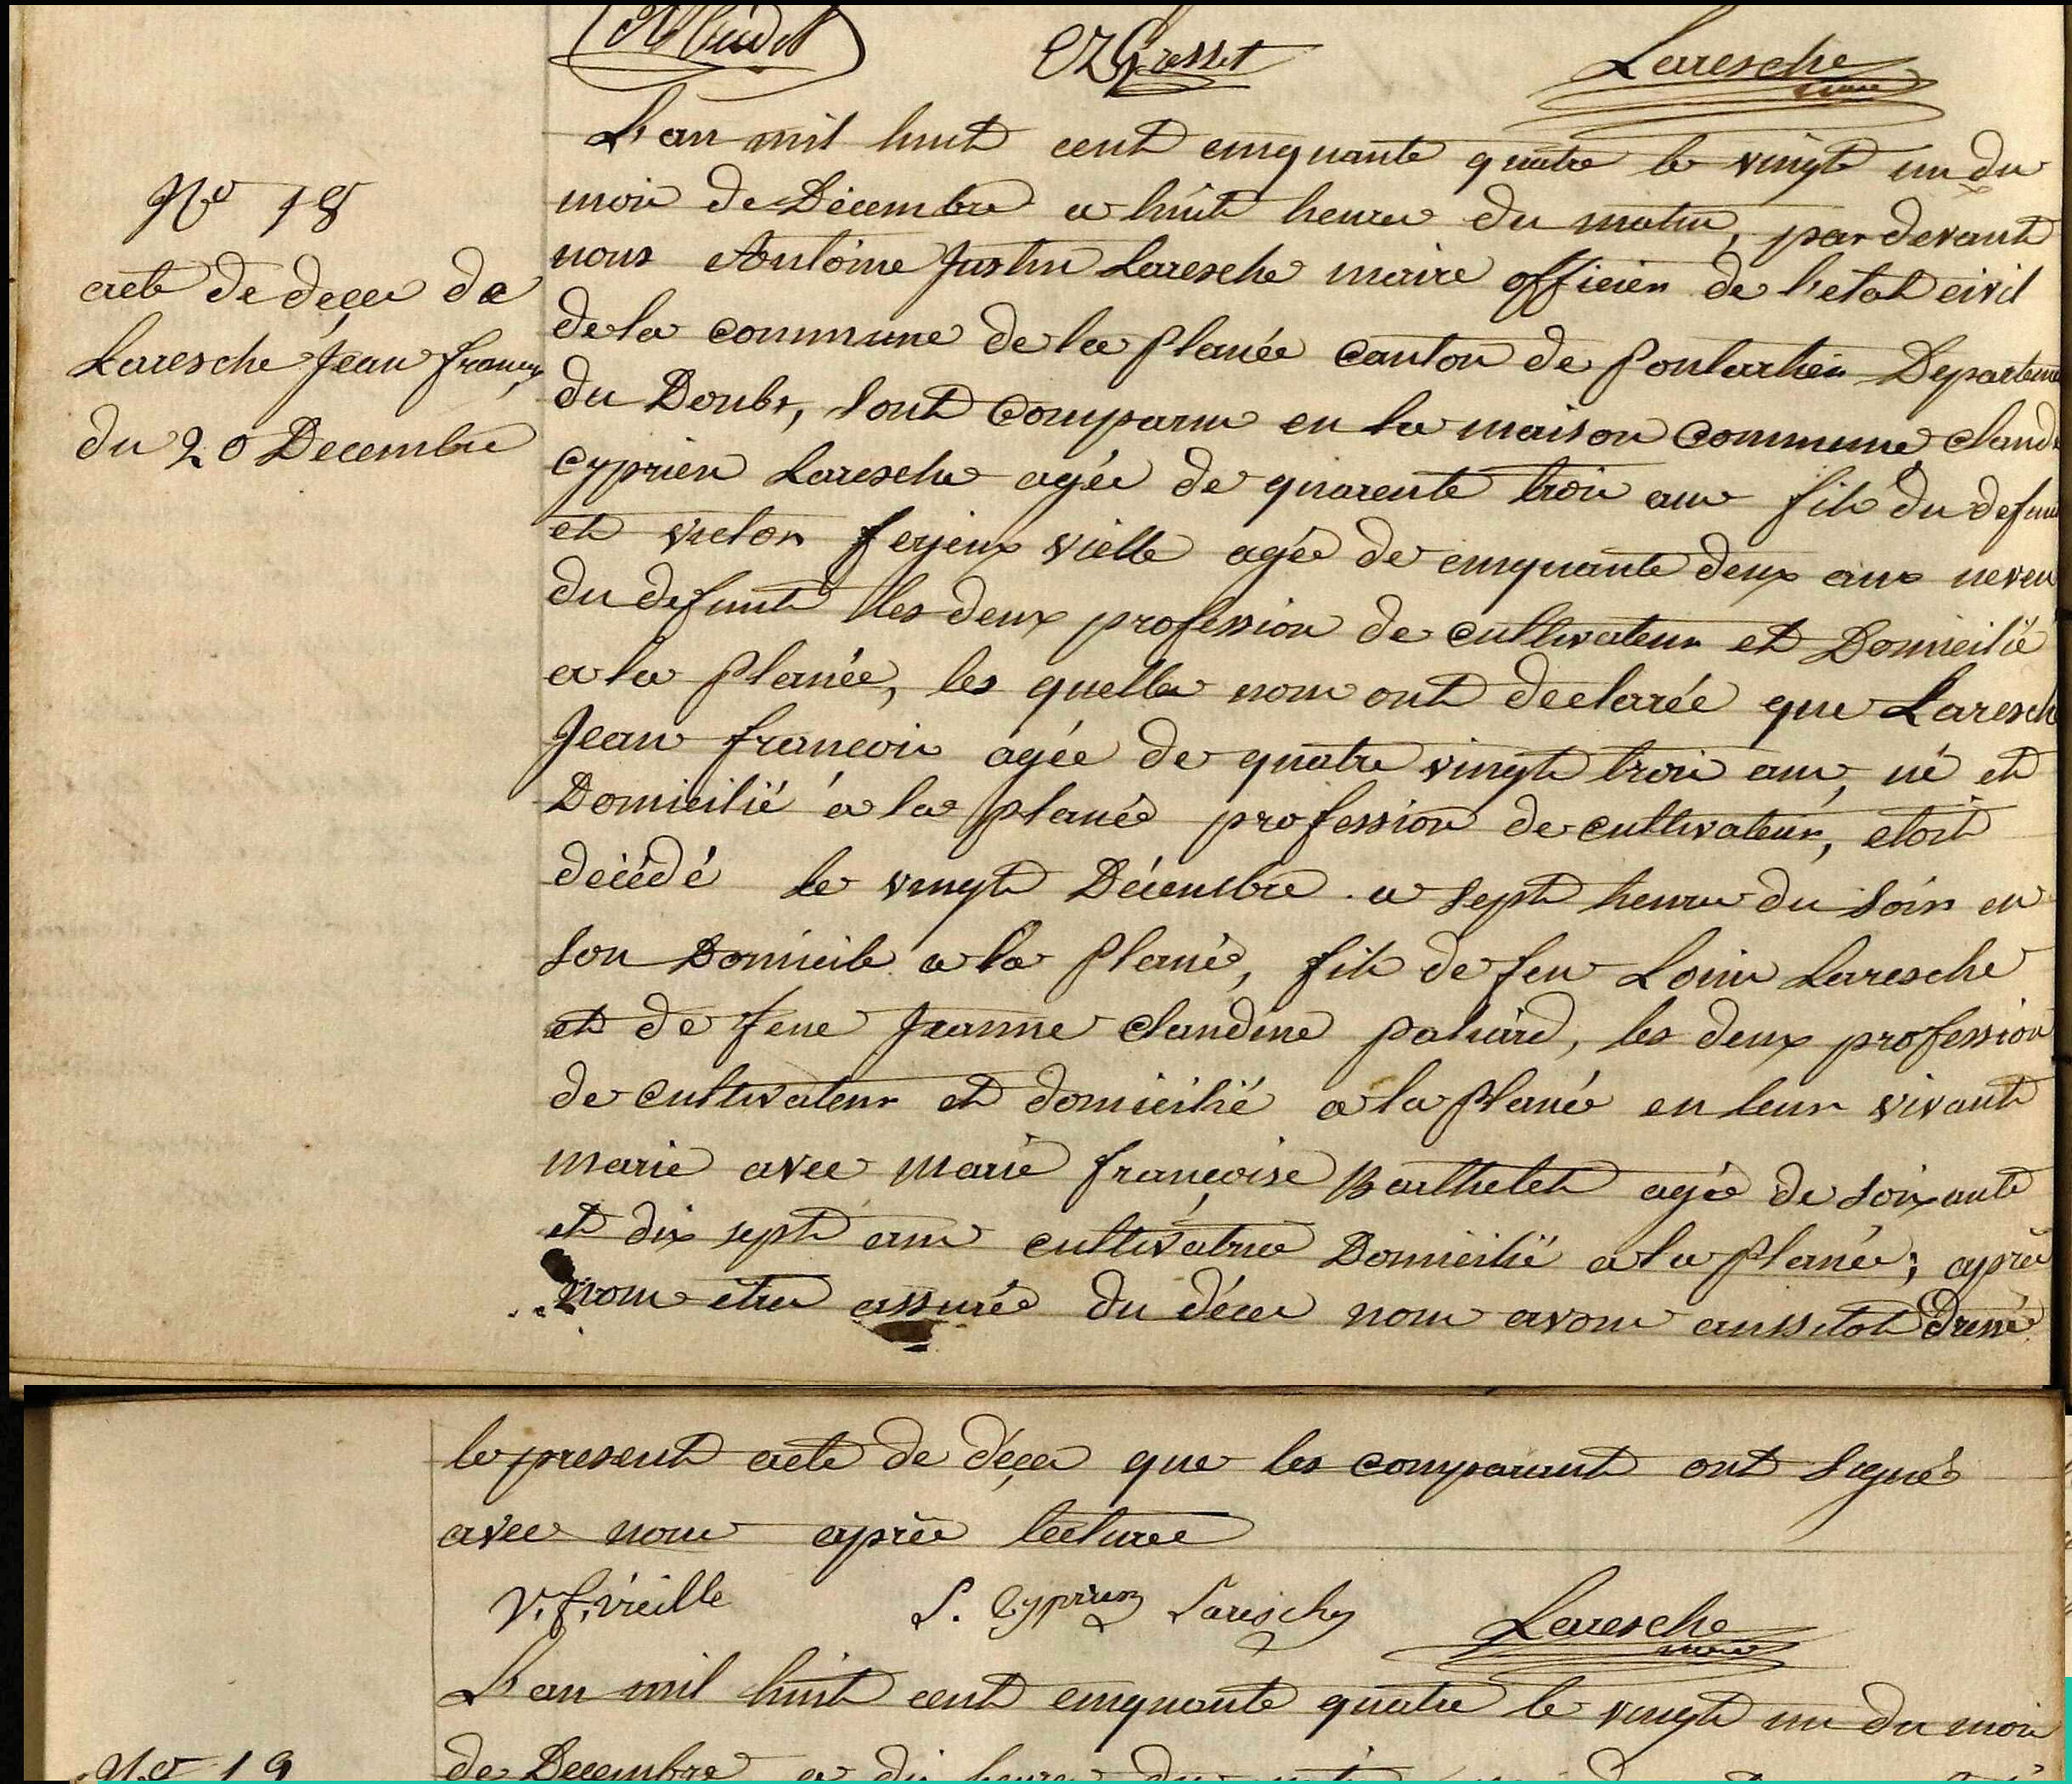 Gresset Laresche
maire
L'an mil huit cent cinquante quatre le vingt un du
mois de Décembre a huit heures du matin, par devant
nous Antoine Justin Laresche maire officier de l'etat civil
de la commune de la Planée canton de Pontarlier Departeme
du Doubs, sont comparus en la maison commune claude
cyprien Laresche agée de quarente trois ans fils du defunt
et victor ferjeux vielle agée de cinquante deux ans neveu
du defunt les deux profession de cultivateur et Domicilié
a la Planée, les quelles nous ont declarée que Laresche
Jean francois agée de quatre vingt trois ans, né et
Domicilié a la planée profession de cultivateur, etoit
décédé le vingt Décembre a sept heures du soir en
son Domicile a la Planée, fils de feu Louis Laresche
et de feue Jeanne claudine pahiard, les deux profession
de cultivateur et domicilié a la Planée en leur vivant
marié avec marie françoise Barthelet agée de soixante
et dix sept ans cultivatrice Domicilié a la Planée; après
nous être assurée du décès nous avons aussitot Dressé
N° 18
acte de deçes de
Laresche Jean françois
du 20 Decembre
le present acte de deçes que les comparant ont signés
avec nous après lecturee
V. f. vieille C. Cyprien Laresche Laresche
maire
L'an mil huit cent cinquante quatre le vingt un du mois
N° 19
de Decembre a dix heures du